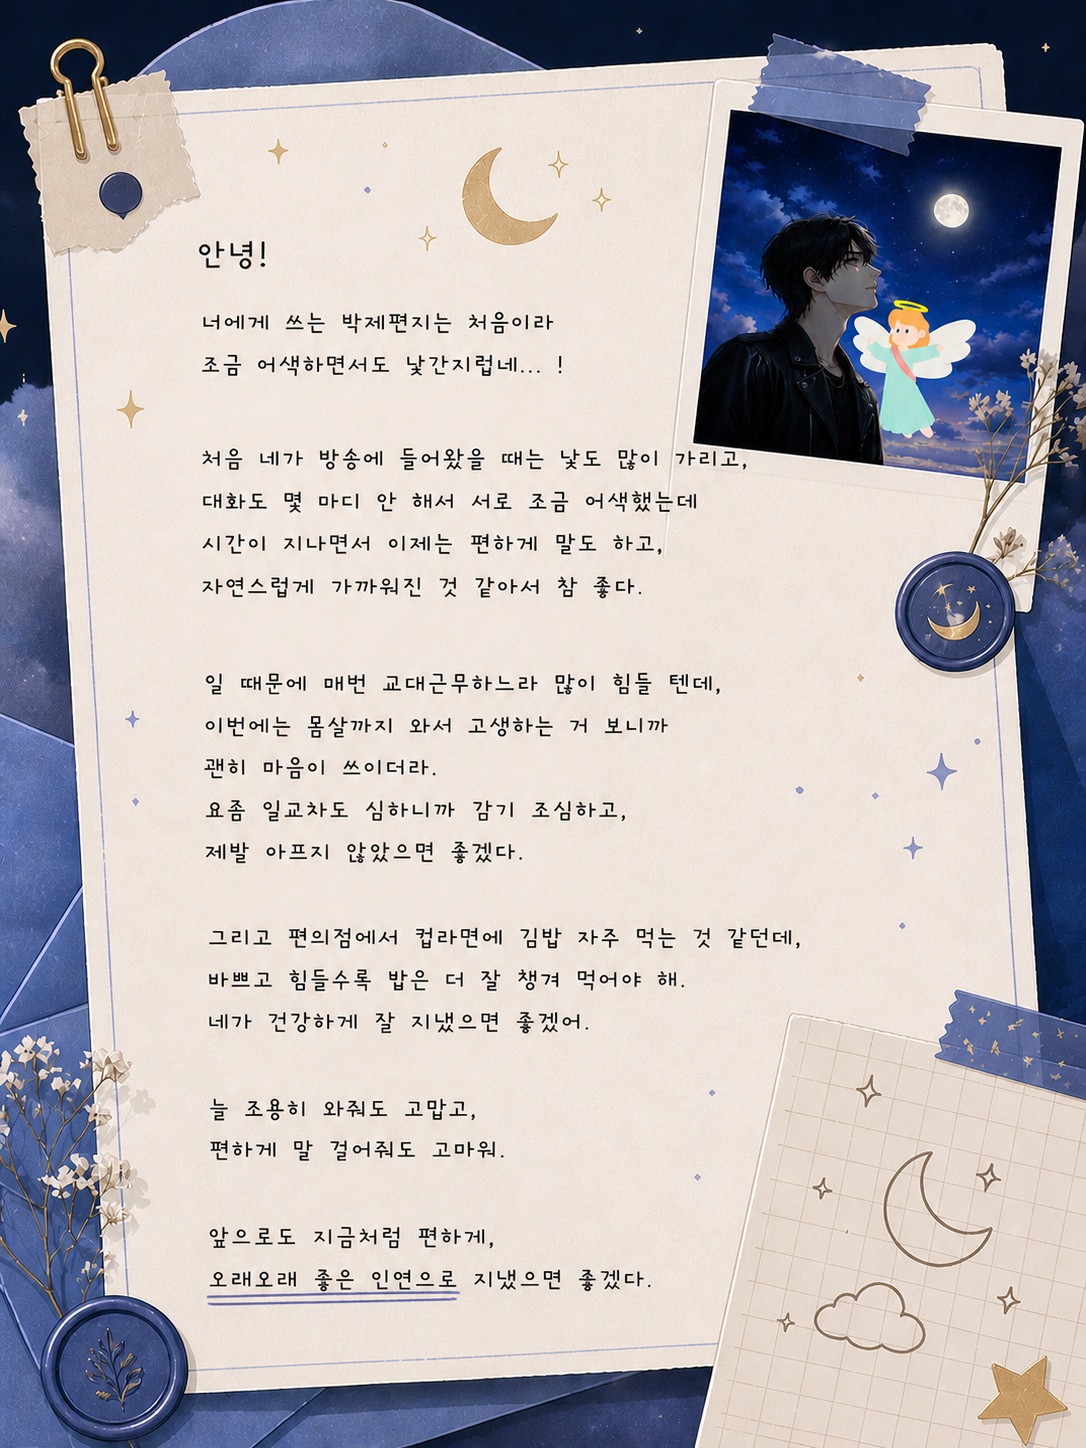 안녕!
너에게 쓰는 박제편지는 처음이라
조금 어색하면서도 낯간지럽네... !
처음 네가 방송에 들어왔을 때는 낯도 많이 가리고,
대화도 몇 마디 안 해서 서로 조금 어색했는데
시간이 지나면서 이제는 편하게 말도 하고,
자연스럽게 가까워진 것 같아서 참 좋다.
일 때문에 매번 교대근무하느라 많이 힘들 텐데,
이번에는 몸살까지 와서 고생하는 거 보니까
괜히 마음이 쓰이더라.
요즘 일교차도 심하니까 감기 조심하고,
제발 아프지 않았으면 좋겠다.
그리고 편의점에서 컵라면에 김밥 자주 먹는 것 같던데,
바쁘고 힘들수록 밥은 더 잘 챙겨 먹어야 해.
네가 건강하게 잘 지냈으면 좋겠어.
늘 조용히 와줘도 고맙고,
편하게 말 걸어줘도 고마워.
앞으로도 지금처럼 편하게,
오래오래 좋은 인연으로 지냈으면 좋겠다.